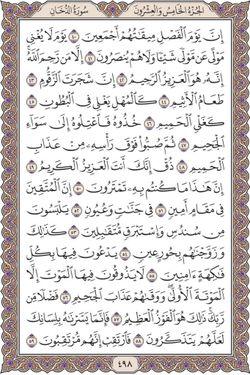 الجزء الخامس والعشرون
سورة الدخان
إِنَّ يَوْمَ الْفَصْلِ مِيقَاتُهُمْ أَجْمَعِينَ ٤٠ يَوْمَ لَا يُغْنِي
مَوْلًى عَن مَّوْلًى شَيْئًا وَلَا هُمْ يُنصَرُونَ ٤١ إِلَّا مَن رَّحِمَ اللَّهُ
إِنَّهُ هُوَ الْعَزِيزُ الرَّحِيمُ ٤٢ إِنَّ شَجَرَتَ الزَّقُّومِ ٤٣
طَعَامُ الْأَثِيمِ ٤٤ كَالْمُهْلِ يَغْلِي فِي الْبُطُونِ ٤٥
كَغَلْيِ الْحَمِيمِ ٤٦ خُذُوهُ فَاعْتِلُوهُ إِلَى سَوَاءِ
الْجَحِيمِ ٤٧ ثُمَّ صُبُّوا فَوْقَ رَأْسِهِ مِنْ عَذَابِ
الْحَمِيمِ ٤٨ ذُقْ إِنَّكَ أَنتَ الْعَزِيزُ الْكَرِيمُ ٤٩
إِنَّ هَذَا مَا كُنتُم بِهِ تَمْتَرُونَ ٥٠ إِنَّ الْمُتَّقِينَ
فِي مَقَامٍ أَمِينٍ ٥١ فِي جَنَّاتٍ وَعُيُونٍ ٥٢ يَلْبَسُونَ
مِن سُندُسٍ وَإِسْتَبْرَقٍ مُّتَقَابِلِينَ ٥٣ كَذَلِكَ
وَزَوَّجْنَاهُم بِحُورٍ عِينٍ ٥٤ يَدْعُونَ فِيهَا بِكُلِّ
فَاكِهَةٍ آمِنِينَ ٥٥ لَا يَذُوقُونَ فِيهَا الْمَوْتَ إِلَّا
الْمَوْتَةَ الْأُولَى وَوَقَاهُمْ عَذَابَ الْجَحِيمِ ٥٦ فَضْلًا مِّن
رَّبِّكَ ذَلِكَ هُوَ الْفَوْزُ الْعَظِيمُ ٥٧ فَإِنَّمَا يَسَّرْنَاهُ بِلِسَانِكَ
لَعَلَّهُمْ يَتَذَكَّرُونَ ٥٨ فَارْتَقِبْ إِنَّهُم مُّرْتَقِبُونَ ٥٩
٤٩٨